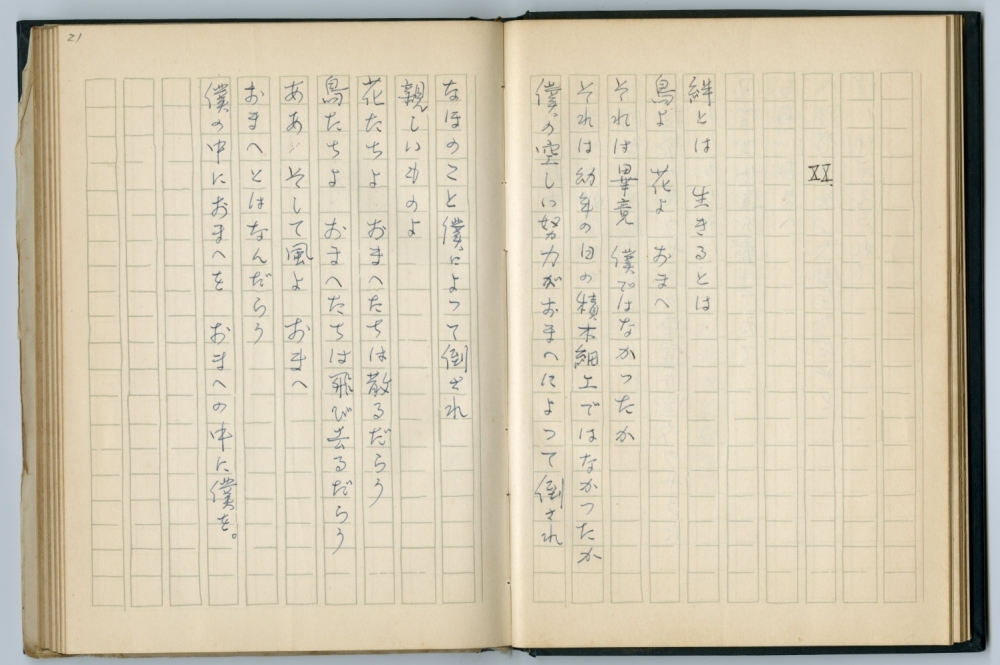 XX.
絆とは 生きるとは
鳥よ 花よ おまへ
それは畢竟 僕ではなかつたか
それは幼年の日の積木細工ではなかつたか
僕の空しい努力がおまへによつて倒され
なほのこと僕によつて倒され
親しいものよ
花たちよ おまへたちは散るだらう
鳥たちよ おまへたちは飛び去るだらう
ああ そして風よ おまへ
おまへとはなんだらう
僕の中におまへを おまへの中に僕を。
21